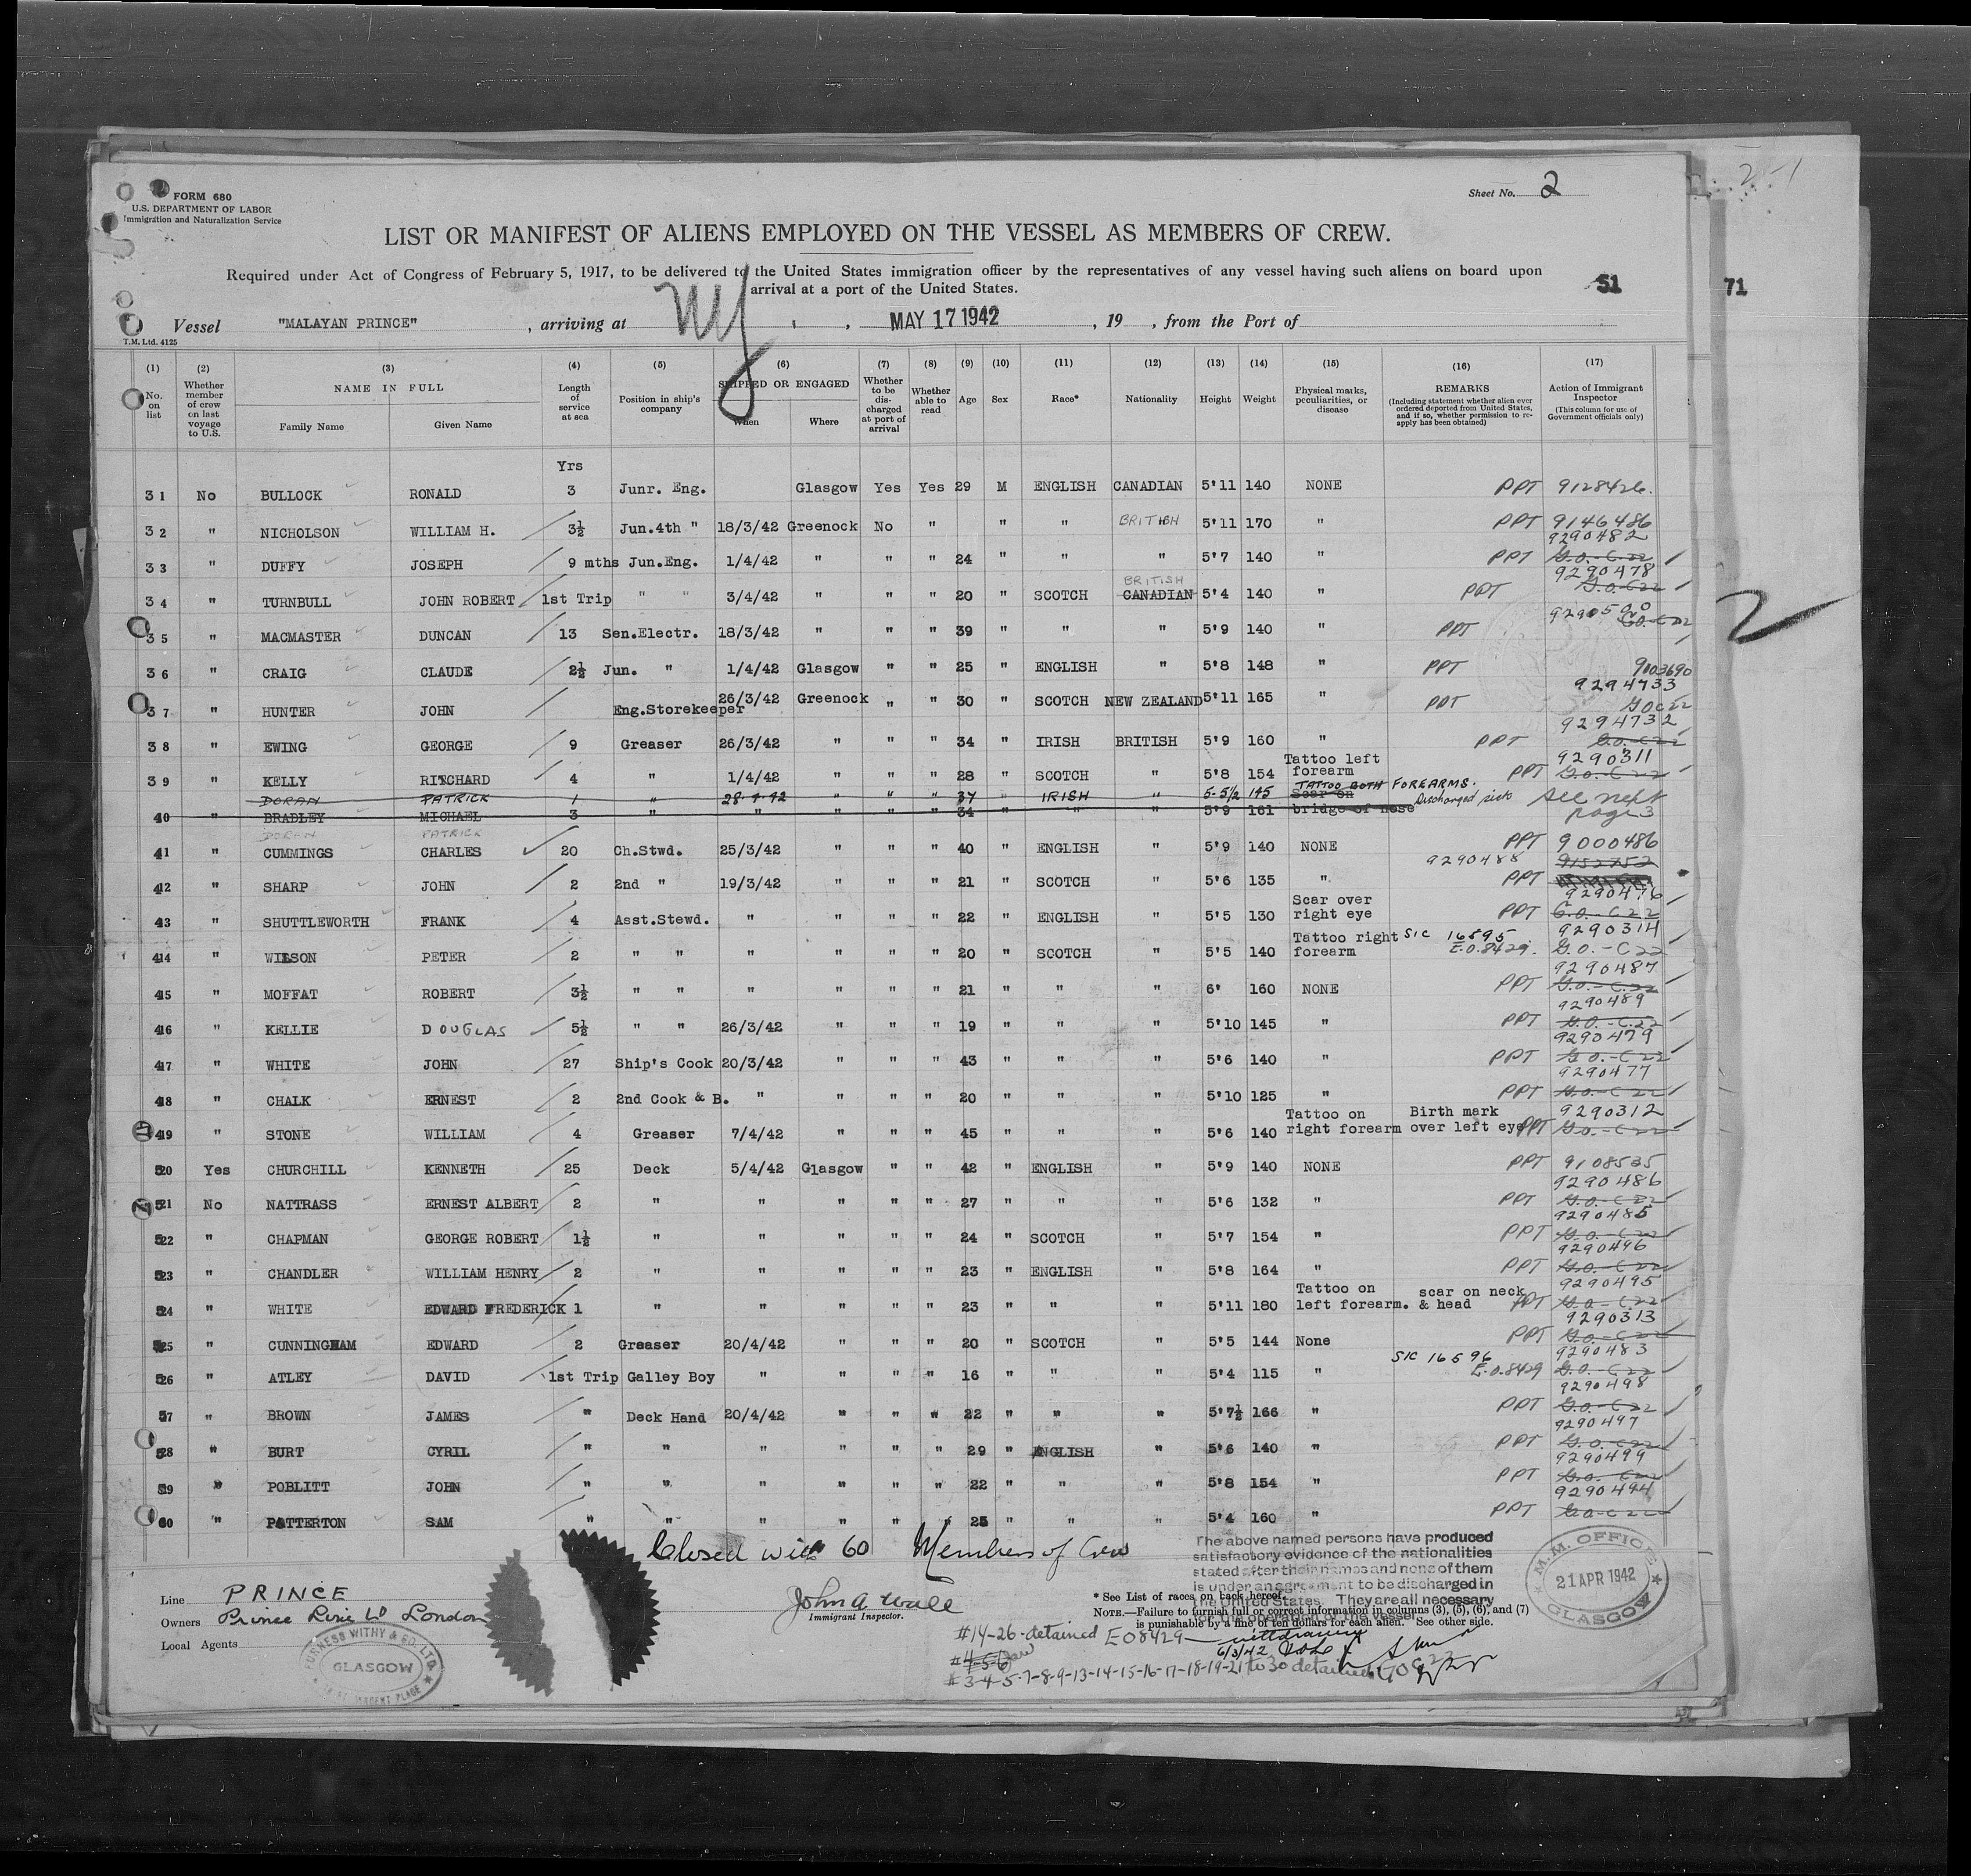 2-1
FORM 680
U.S. DEPARTMENT OF LABOR
Immigration and Naturalization Service
Sheet No. 2
LIST OR MANIFEST OF ALIENS EMPLOYED ON THE VESSEL AS MEMBERS OF CREW.
Required under Act of Congress of February 5, 1917, to be delivered to the United States immigration officer by the representatives of any vessel having such aliens on board upon
arrival at a port of the United States.
51
71
Vessel "MALAYAN PRINCE" , arriving at NY , MAY 17 1942 , 19 , from the Port of
T.M. Ltd. 4125
(1) (2) (3) (4) (5) (6) (7) (8) (9) (10) (11) (12) (13) (14) (15) (16) (17)
No. on list
Whether member of crew on last voyage to U.S.
NAME IN FULL
Family Name
Given Name
Length of service at sea
Position in ship's company
SHIPPED OR ENGAGED
When
Where
Whether to be discharged at port of arrival
Whether able to read
Age
Sex
Race*
Nationality
Height
Weight
Physical marks, peculiarities, or disease
REMARKS
(Including statement whether alien ever ordered deported from United States, and if so, whether permission to reapply has been obtained)
Action of Immigrant Inspector
(This column for use of Government officials only)
Yrs
31 No BULLOCK RONALD 3 Junr. Eng. Glasgow Yes Yes 29 M ENGLISH CANADIAN 5'11 140 NONE PPT 9128426.
32 " NICHOLSON WILLIAM H. 3½ Jun.4th " 18/3/42 Greenock No " " " BRITISH 5'11 170 " PPT 9146486
9290482
33 " DUFFY JOSEPH 9 mths Jun.Eng. 1/4/42 " " " 24 " " " 5'7 140 " PPT G.O.-C-22
9290478
BRITISH
34 " TURNBULL JOHN ROBERT 1st Trip " " 3/4/42 " " " 20 " SCOTCH CANADIAN 5'4 140 " PPT G.O.-C22
9290500
35 " MACMASTER DUNCAN 13 Sen.Electr. 18/3/42 " " " 39 " " " 5'9 140 " PPT G.O.-C22
36 " CRAIG CLAUDE 2½ Jun. " 1/4/42 Glasgow " " 25 " ENGLISH " 5'8 148 " PPT 9103690
9294733
37 " HUNTER JOHN Eng.Storekeeper 26/3/42 Greenock " " 30 " SCOTCH NEW ZEALAND 5'11 165 " PPT GOC22
9294732
38 " EWING GEORGE 9 Greaser 26/3/42 " " " 34 " IRISH BRITISH 5'9 160 " PPT G.O.-C22
9290311
39 " KELLY RITCHARD 4 " 1/4/42 " " " 28 " SCOTCH " 5'8 154 Tattoo left forearm PPT G.O.-C22
DORAN PATRICK 1 " 28.4.42 " " " 37 " IRISH " 5-5½ 145 TATTOO BOTH FOREARMS.
40 " BRADLEY MICHAEL 3 " " " " " 34 " " " 5'9 161 Scar on bridge of nose Discharged sick See next page 3
DORAN PATRICK
41 " CUMMINGS CHARLES 20 Ch.Stwd. 25/3/42 " " " 40 " ENGLISH " 5'9 140 NONE PPT 9000486
9290488 9152752
42 " SHARP JOHN 2 2nd " 19/3/42 " " " 21 " SCOTCH " 5'6 135 " PPT
9290476
43 " SHUTTLEWORTH FRANK 4 Asst.Stewd. " " " " 22 " ENGLISH " 5'5 130 Scar over right eye PPT G.O.-C22
9290314
44 " WILSON PETER 2 " " " " " " 20 " SCOTCH " 5'5 140 Tattoo right forearm SIC 16895 E.O.8429. G.O.-C22
9290487
45 " MOFFAT ROBERT 3½ " " " " " " 21 " " " 6' 160 NONE PPT G.O.-C.22
9290489
46 " KELLIE DOUGLAS 5½ " " 26/3/42 " " " 19 " " " 5'10 145 " PPT G.O.-C.22
9290479
47 " WHITE JOHN 27 Ship's Cook 20/3/42 " " " 43 " " " 5'6 140 " PPT G.O.-C22
9290477
48 " CHALK ERNEST 2 2nd Cook & B. " " " " 20 " " " 5'10 125 " PPT G.O.-C22
9290312
49 " STONE WILLIAM 4 Greaser 7/4/42 " " " 45 " " " 5'6 140 Tattoo on right forearm Birth mark over left eye PPT G.O.-C22
50 Yes CHURCHILL KENNETH 25 Deck 5/4/42 Glasgow " " 42 " ENGLISH " 5'9 140 NONE PPT 9108535
9290486
21 No NATTRASS ERNEST ALBERT 2 " " " " " 27 " " " 5'6 132 " PPT G.O.-C22
9290485
22 " CHAPMAN GEORGE ROBERT 1½ " " " " " 24 " SCOTCH " 5'7 154 " PPT G.O.-C22
9290496
23 " CHANDLER WILLIAM HENRY 2 " " " " " 23 " ENGLISH " 5'8 164 " PPT G.O.-C22
9290495
24 " WHITE EDWARD FREDERICK 1 " " " " " 23 " " " 5'11 180 Tattoo on left forearm. scar on neck & head PPT G.O.-C22
9290313
25 " CUNNINGHAM EDWARD 2 Greaser 20/4/42 " " " 20 " SCOTCH " 5'5 144 None PPT G.O.-C22
9290483
26 " ATLEY DAVID 1st Trip Galley Boy " " " " 16 " " " 5'4 115 " SIC 16596 E.O.8429 G.O.-C22
9290498
57 " BROWN JAMES " Deck Hand 20/4/42 " " " 22 " " " 5'7½ 166 " PPT G.O.-C22
9290497
58 " BURT CYRIL " " " " " " 29 " ENGLISH " 5'6 140 " PPT G.O.C22
9290499
59 " POBLITT JOHN " " " " " " 22 " " " 5'8 154 " PPT G.O.-C22
9290494
60 " PATTERTON SAM " " " " " " 25 " " " 5'4 160 " PPT G.O-C22
Closed with 60 Members of Crew
The above named persons have produced
satisfactory evidence of the nationalities
stated after their names and none of them
is under an agreement to be discharged in
the United States. They are all necessary
for the operation of the vessel
M.M. OFFICE
21 APR 1942
GLASGOW
Line PRINCE
Owners Prince Line Ld London
Local Agents
FURNESS WITHY & CO. LTD.
GLASGOW
John A Wall
Immigrant Inspector.
* See List of races on back hereof.
NOTE.—Failure to furnish full or correct information in columns (3), (5), (6), and (7)
is punishable by a fine of ten dollars for each alien. See other side.
#14-26-detained EO8429 withdrawn
6/3/42
#4-5-6
#3-4-5-7-8-9-13-14-15-16-17-18-19-21 to 30 detained GOC22
2